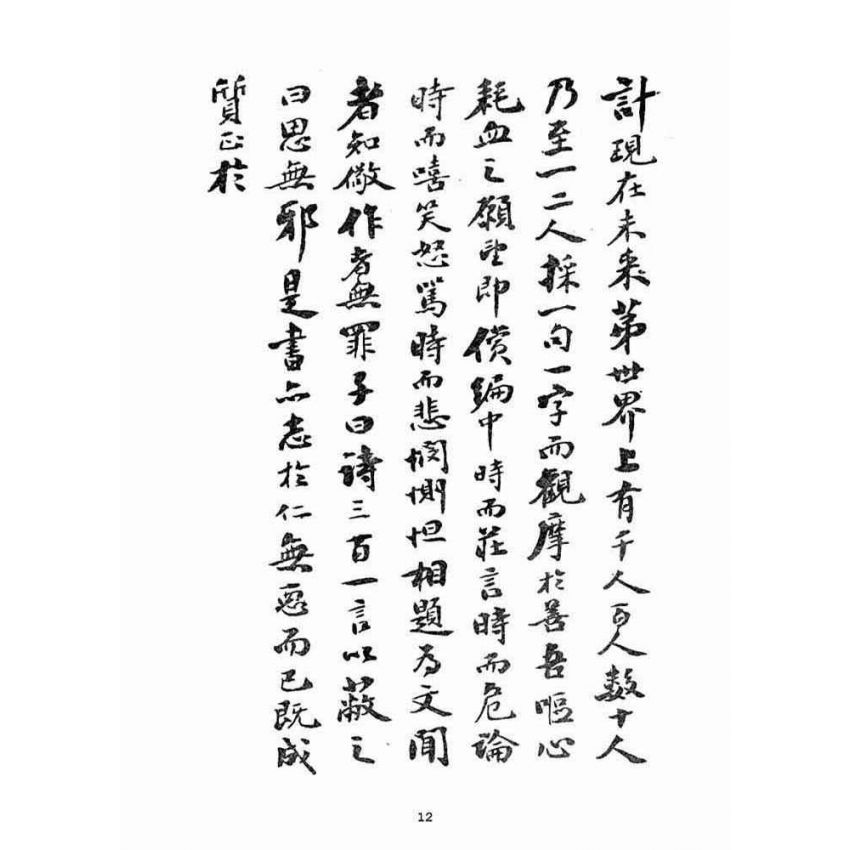 計現在未來第世界上有千人百人數十人
乃至一二人採一句一字而觀摩於善吾嘔心
耗血之願望即償編中時而莊言時而危論
時而嘻笑怒罵時而悲憫惻怛相題為文聞
者知儆作者無罪子曰詩三百一言以蔽之
曰思無邪是書亦志於仁無惡而已既成
質正於
12